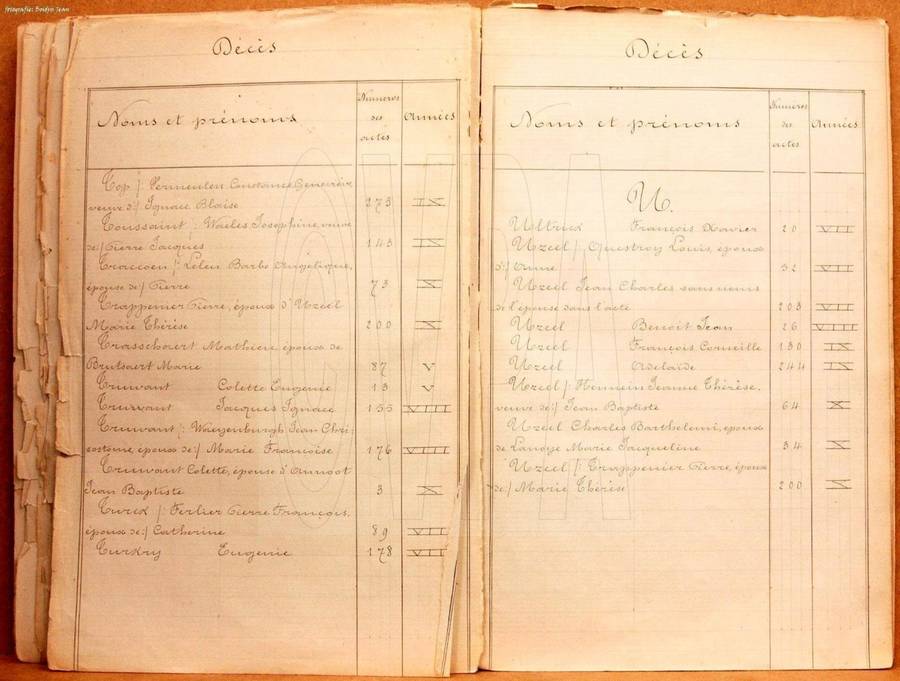 fotografies Boidyn Jean
Décès
Noms et prénoms
Numéros des actes
Années
Top /: Vermeulen Constance Geneviève,
veuve de :/ Ignace Blaise 273 IX
Toussaint /: Waeles Josephine, veuve
de :/ Pierre Jacques 143 IX
Traccoen /: Leleu Barbe Angélique,
épouse de :/ Pierre 73 X
Trappenier Pierre, époux d'Uzeel
Marie Thérèse 200 X
Trasschaert Mathieu, époux de
Brutsaert Marie 87 V
Truwant Colette Eugenie 13 V
Truwant Jacques Ignace 155 VIII
Truwant /: Waeyenburgh Jean Chri
sostome, époux de :/ Marie Françoise 176 VIII
Truwant Colette, épouse d'Annoot
Jean Baptiste 3 X
Turck /: Ferlier Pierre François,
époux de :/ Catherine 89 VII
Turkry Eugenie 178 VII
Décès
Noms et prénoms
Numéros des actes
Années
U.
Ultrick François Xavier 20 VII
Uzeel /: Questroy Louis, époux
d :/ Anne 32 VII
Uzeel Jean Charles sans noms
de l'épouse dans l'acte 203 VII
Uzeel Benoit Jean 26 VIII
Uzeel François Corneille 130 IX
Uzeel Adelaïde 244 IX
Uzeel /: Hennein Jeanne Thérèse,
veuve de :/ Jean Baptiste 64 X
Uzeel Charles Barthelemi, époux
de Lanoye Marie Jacqueline 34 X
Uzeel /: Trappenier Pierre, époux
de :/ Marie Thérèse 200 X